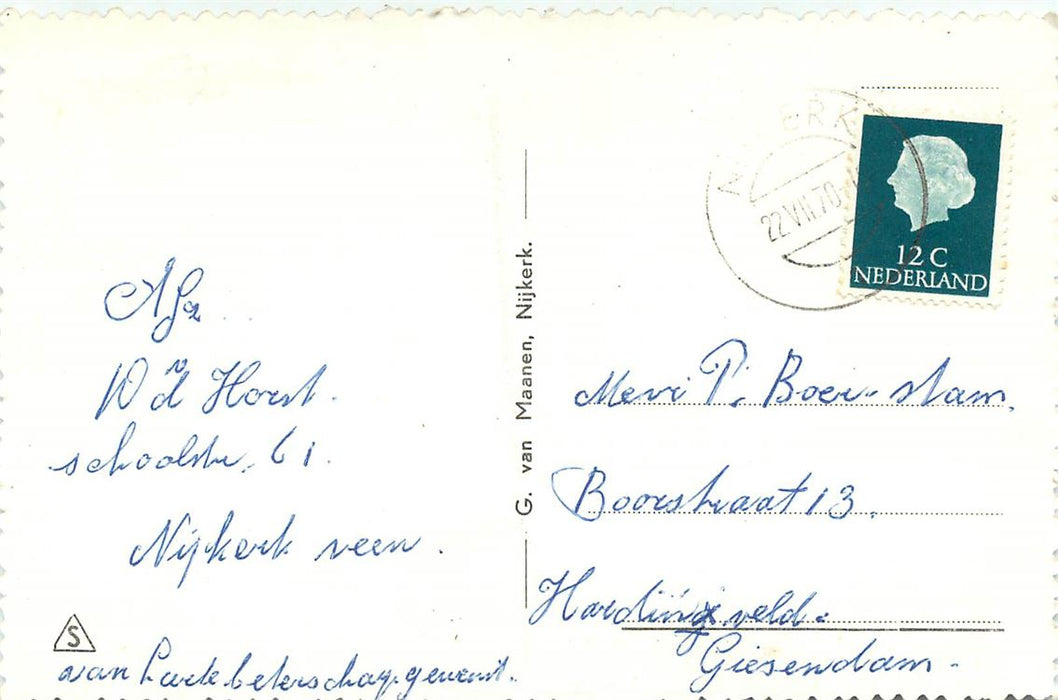 Afz
W v d Horst.
schoolstr. 61.
Nijkerk veen.
van harte beterschap gewenst.
S
G. van Maanen, Nijkerk.
22 VII.70
12 C
NEDERLAND
Mevr P. Boer-stam.
Boorstraat 13.
Hardingxveld-
Giesendam-